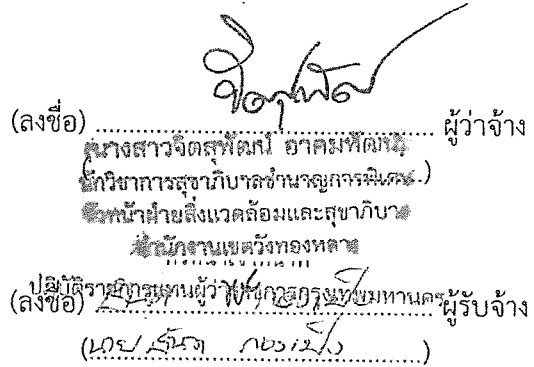 (ลงชื่อ) ........................................ ผู้ว่าจ้าง
(นางสาวจิตสุพัฒน์ อาคมพัฒน์)
นักวิชาการสุขาภิบาลชำนาญการพิเศษ
หัวหน้าฝ่ายสิ่งแวดล้อมและสุขาภิบาล
สำนักงานเขตวังทองหลาง
ปฏิบัติราชการแทนผู้ว่าราชการกรุงเทพมหานคร
(ลงชื่อ) ........................................ ผู้รับจ้าง
(นาย